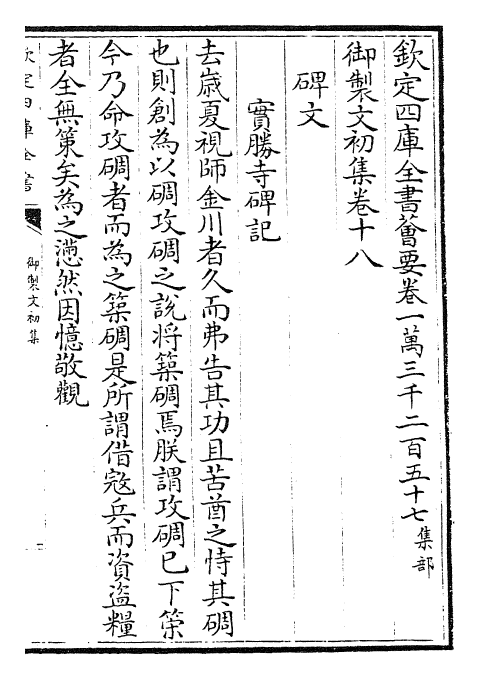 欽定四庫全書薈要卷一萬三千二百五十七集部
御製文初集卷十八
碑文
實勝寺碑記
去歳夏視師金川者久而弗告其功且苦酋之恃其碉
也則創為以碉攻碉之說將築碉焉朕謂攻碉已下策
今乃命攻碉者而為之築碉是所謂借寇兵而資盜糧
者全無策矣為之懣然因憶敬觀
欽定四庫全書
御製文初集
一